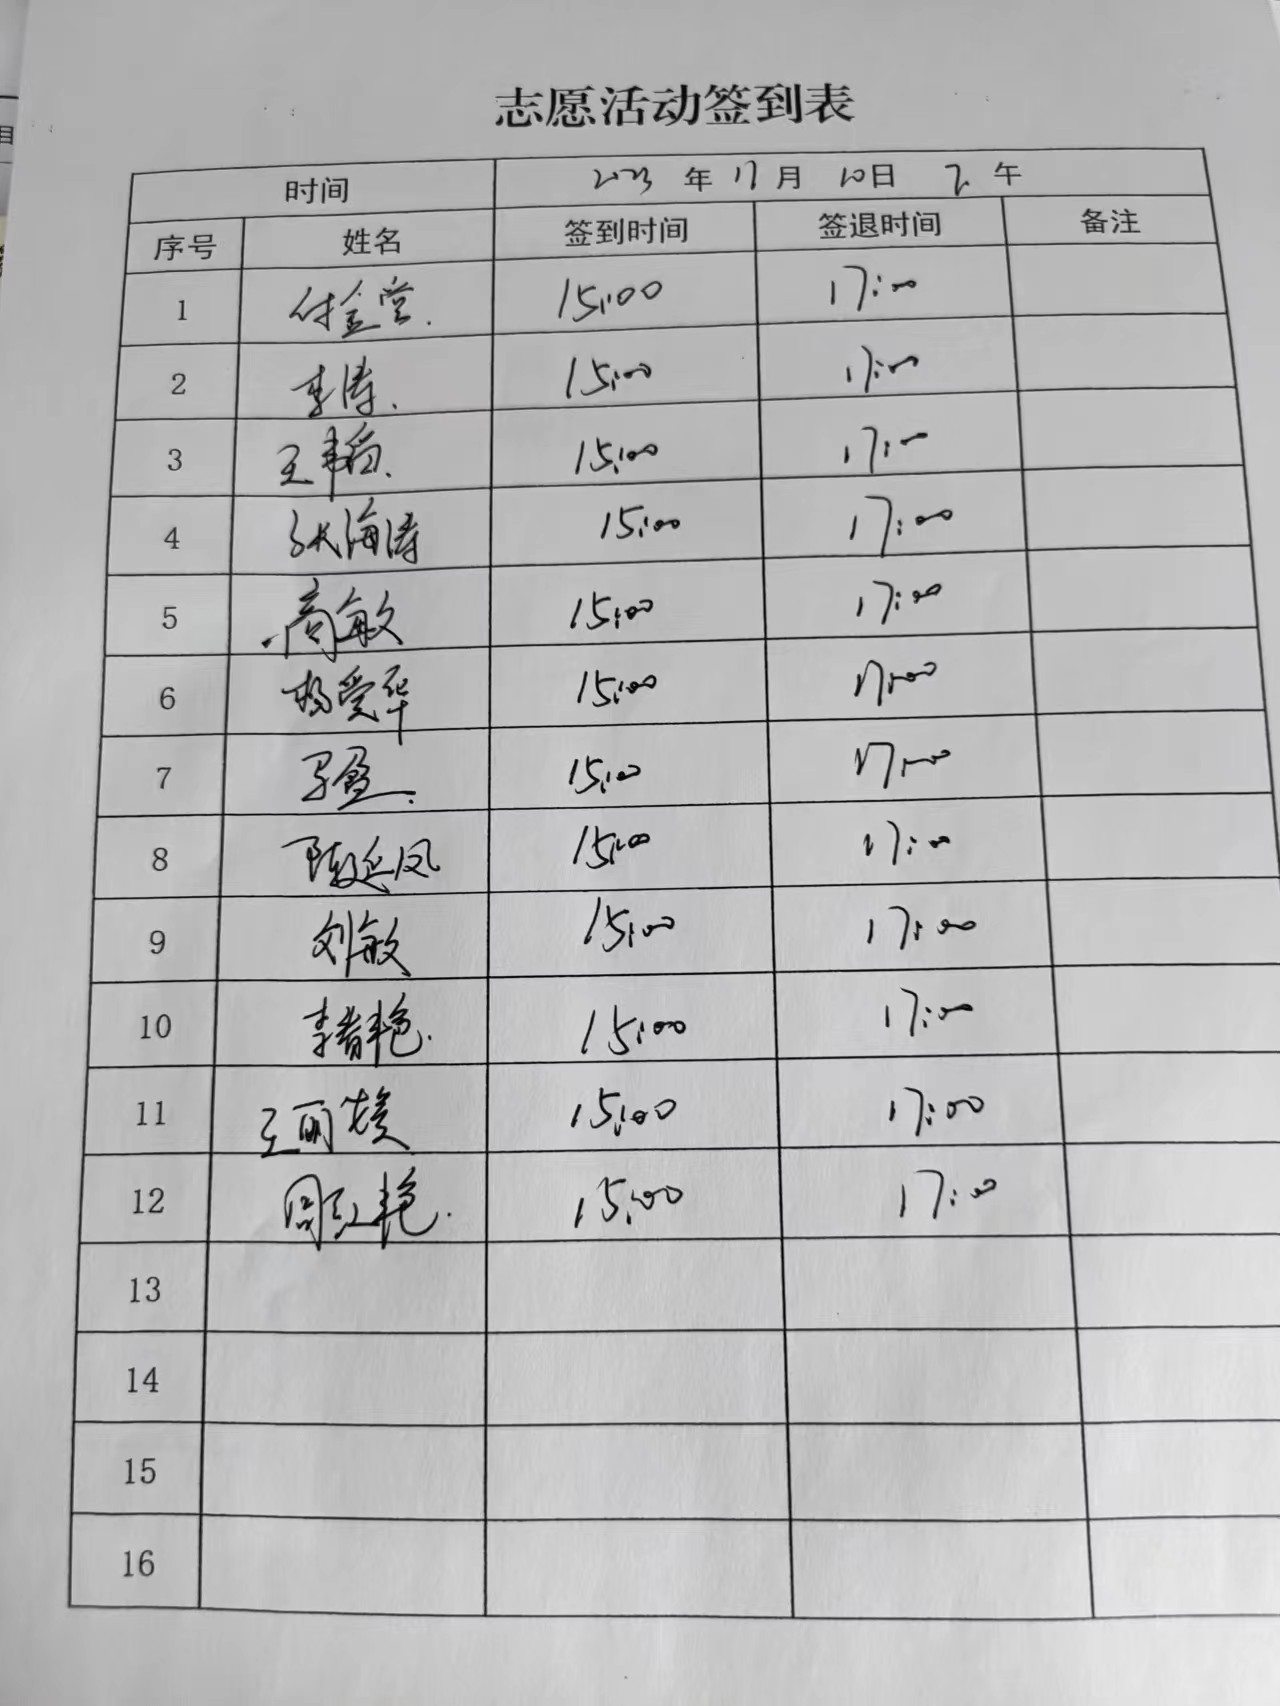 志愿活动签到表
时间 2023 年 月 10日 下 午
序号 姓名 签到时间 签退时间 备注
1 付金堂. 15:00 17:00
2 李涛. 15:00 17:00
3 王韩 15:00 17:00
4 张海涛 15:00 17:00
5 高敏 15:00 17:00
6 杨爱华 15:00 17:00
7 马盈. 15:00 17:00
8 陈延凤 15:00 17:00
9 刘敏 15:00 17:00
10 李春艳. 15:00 17:00
11 王丽媛 15:00 17:00
12 周红艳. 15:00 17:00
13
14
15
16
目